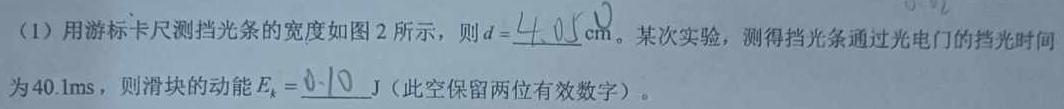 （1）用游标卡尺测挡光条的宽度如图 2 所示，则 d = 4.05 cm。某次实验，测得挡光条通过光电门的挡光时间
为 40.1ms，则滑块的动能 Eₖ = 0.10 J（此空保留两位有效数字）。